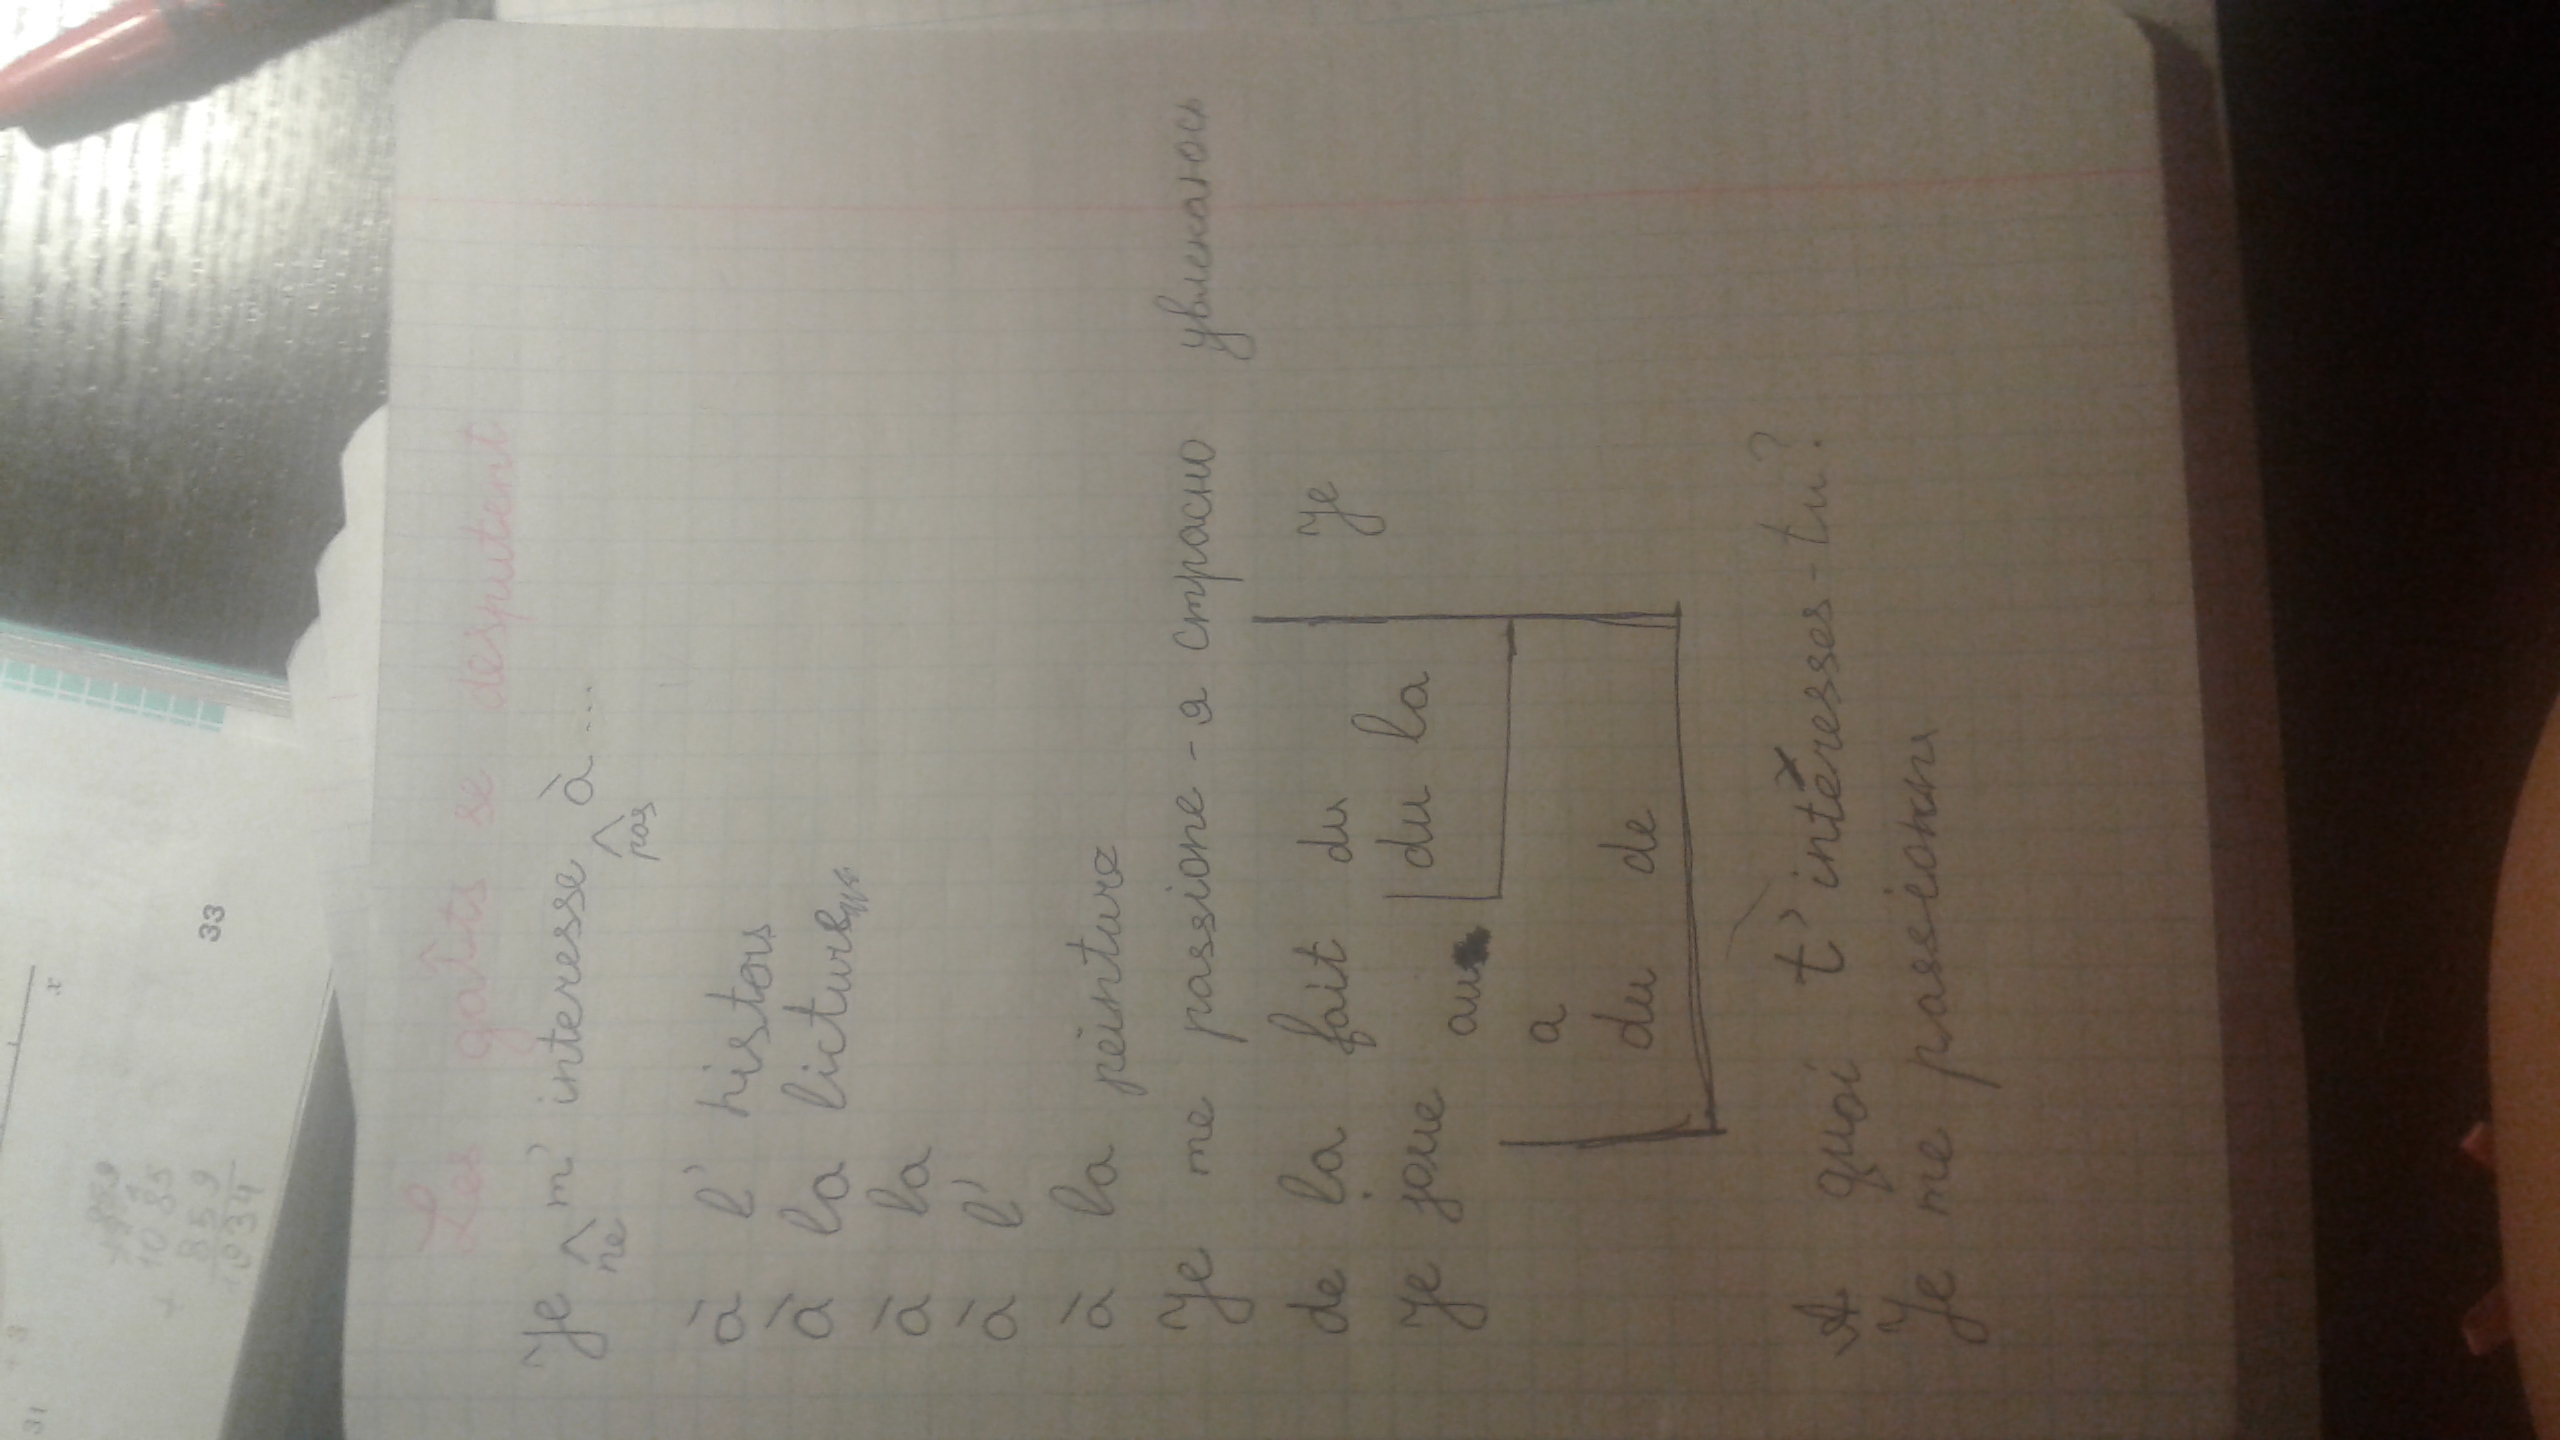 Les gaîts se desputent
Je m' interesse à...
ne pas
à l' histors
à la licture
à la
à l'
à la peinture
Je me passione - я страсно увлекаюсь
de la fait du Je
Je joue au du la
a
du de
A quoi t' intéresses-tu?
Je me passionn
33
x
1085
859